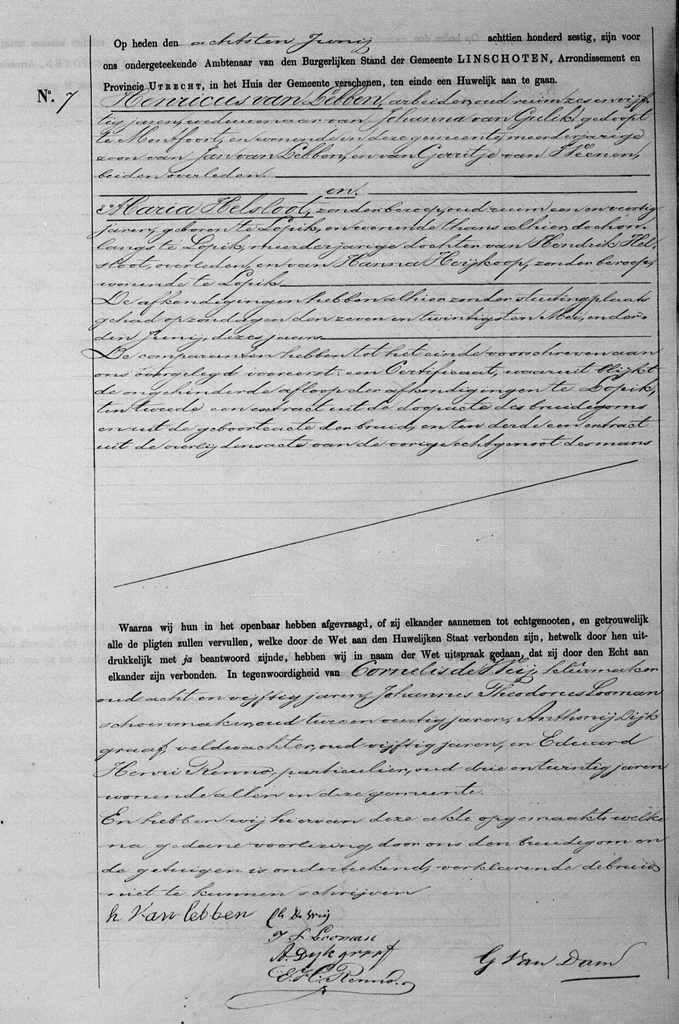 Op heden den achtsten Junij achttien honderd zestig, zijn voor
ons ondergeteekende Ambtenaar van den Burgerlijken Stand der Gemeente LINSCHOTEN, Arrondissement en
Provincie UTRECHT, in het Huis der Gemeente verschenen, ten einde een Huwelijk aan te gaan.
N°. 7
Henricus van Lebben, arbeider, oud ruim zes en vijf-
tig jaren, weduwenaar van Johanna van Gulik, gedoopt
te Montfoort, en wonende in deze gemeente, meerderjarige
zoon van Jan van Lebben, en van Gerritje van
beiden overleden.
en
Maria Helsloot, zonder beroep, oud ruim een en veertig
jaren, geboren te Lopik, en wonende thans alhier, doch on-
langs te Lopik, meerderjarige dochter van Hendrik Hel-
sloot, overleden, en van Hanna Heijkoop, zonder beroep,
wonende te Lopik.
De afkondigingen hebben alhier zonder stuiting plaats
gehad op zondagen den zeven en twintigsten Mei, en der-
den Junij, dezes jaars.
De comparanten hebben tot het einde voorschreven aan
ons overgelegd vooreerst: een Certificaat, waaruit blijkt
de ongehinderde afloop der afkondigingen te Lopik,
ten tweede een extract uit de doopacte des bruidegoms
en uit de geboorteacte der bruid, en ten derde een extract
uit de overlijdensacte van de vorige echtgenoot des mans
Waarna wij hun in het openbaar hebben afgevraagd, of zij elkander aannemen tot echtgenooten, en getrouwelijk
alle de pligten zullen vervullen, welke door de Wet aan den Huwelijken Staat verbonden zijn, hetwelk door hen uit-
drukkelijk met ja beantwoord zijnde, hebben wij in naam der Wet uitspraak gedaan, dat zij door den Echt aan
elkander zijn verbonden. In tegenwoordigheid van Cornelis de Wijs, kleermaker
oud acht en vijftig jaren, Johannes Theodorus Looman
schoenmaker, oud twee en veertig jaren, Anthonij Dijk-
graaf, veldwachter, oud vijftig jaren, en Eduard
Henri Renno, particulier, oud drie en twintig jaren
wonende allen in deze gemeente.
En hebben wij hiervan deze akte opgemaakt, welke
na gedane voorlezing, door ons den bruidegom en
de getuigen is onderteekend, verklarende de bruid
niet te kunnen schrijven
h. Van lebben
Looman
A. Dijkgraaf
E. H. Renno.
G Van Dam